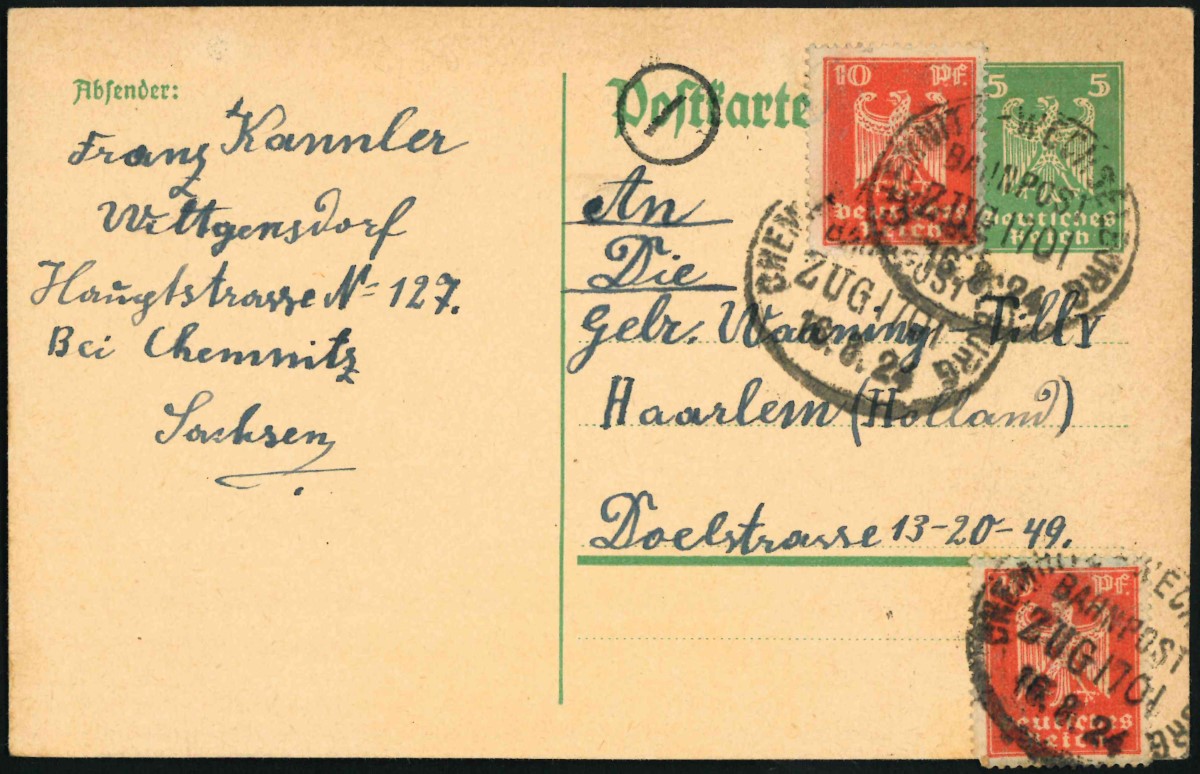 Absender:
Franz Kannler
Wittgensdorf
Hauptstrasse N= 127.
Bei Chemnitz
Sachsen
Postkarte
1
10 PF.
Deutsches
Reich
5 5
Deutsches
Reich
CHEMNITZ-WECHSELBURG
BAHNPOST
ZUG 1701
16.8.24
CHEM BURG
BAHNPOST
ZUG 1701
16.8.24
An
Die
Gebr. Waaning-Tilly
Haarlem (Holland)
Doelstrasse 13-20-49.
10 PF.
Deutsches
Reich
CHEMNITZ-WECH BURG
BAHNPOST
ZUG 1701
16.8.24